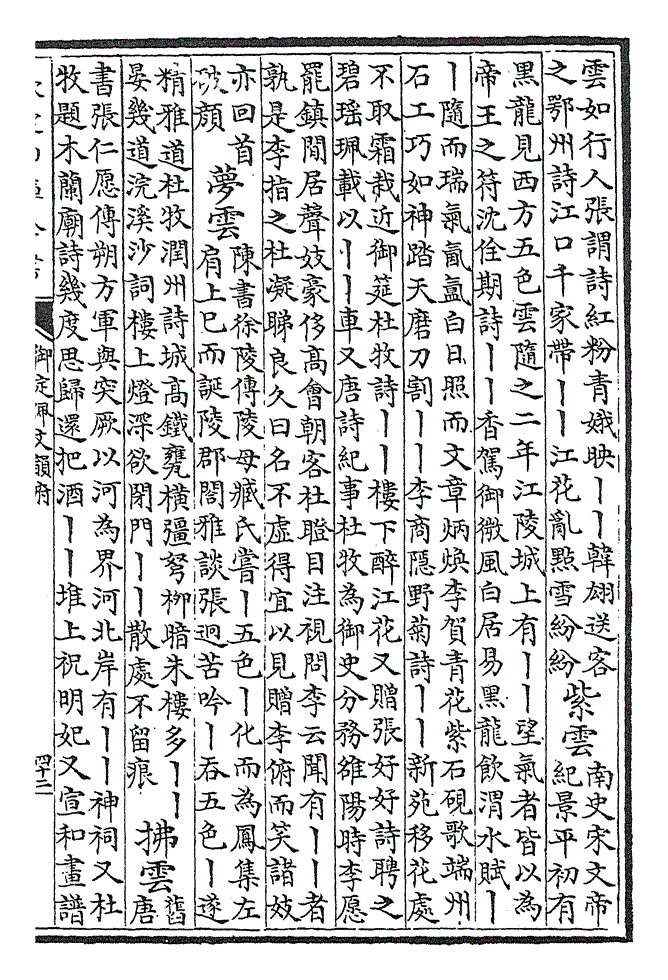 雲如行人張謂詩紅粉青娥映丨丨韓翃送客
之鄂州詩江口千家帶丨丨江花亂點雪紛紛
紫雲
南史宋文帝
紀景平初有
黑龍見西方五色雲隨之二年江陵城上有丨丨望氣者皆以為
帝王之符沈佺期詩丨丨香駕御微風白居易黑龍飲渭水賦丨
丨隨而瑞氣氤氳白日照而文章炳煥李賀青花紫石硯歌端州
石工巧如神踏天磨刀割丨丨李商隱野菊詩丨丨新苑移花處
不取霜栽近御筵杜牧詩丨丨樓下醉江花又贈張好好詩聘之
碧瑤珮載以丨丨車又唐詩紀事杜牧為御史分務雒陽時李愿
罷鎮閒居聲妓豪侈高會朝客杜瞪目注視問李云聞有丨丨者
孰是李指之杜凝睇良久曰名不虛得宜以見贈李俯而笑諸妓
亦回首
破顏
夢雲
陳書徐陵傳陵母臧氏嘗丨五色丨化而為鳳集左
肩上已而誕陵郡閣雅談張迥苦吟丨吞五色丨遂
精雅道杜牧潤州詩城高鐵甕橫彊弩柳暗朱樓多丨丨
晏幾道浣溪沙詞樓上燈深欲閉門丨丨散處不留痕
拂雲
舊
唐
書張仁愿傳朔方軍與突厥以河為界河北岸有丨丨神祠又杜
牧題木蘭廟詩幾度思歸還把酒丨丨堆上祝明妃又宣和畫譜
御定佩文韻府
四十二